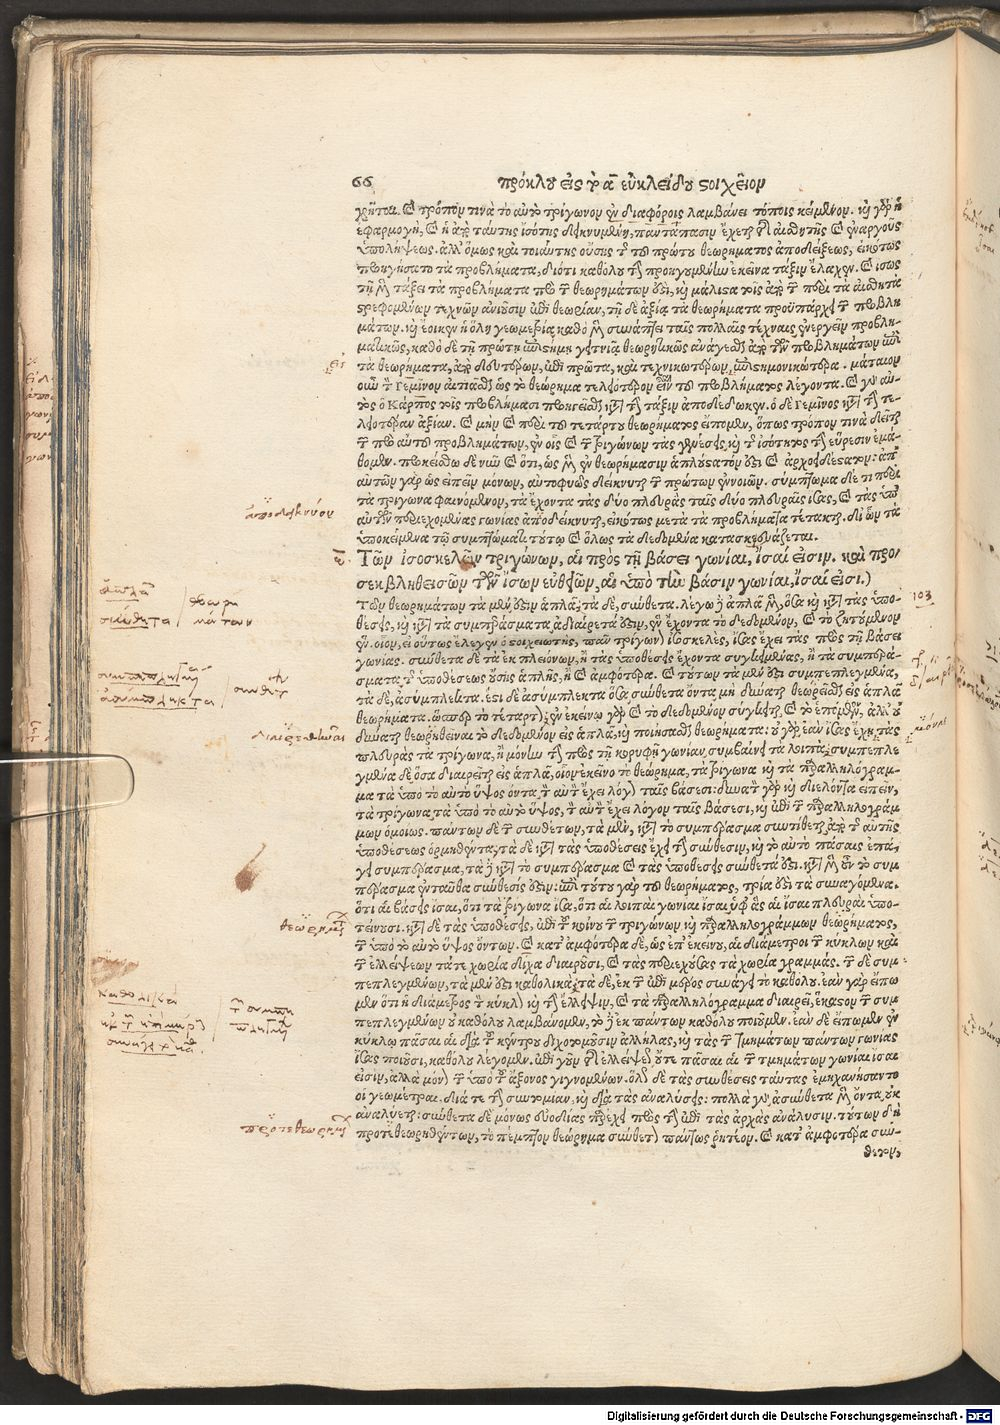 66 πρόκλου εἰς τὸ α εὐκλείδου στοιχεῖον
χρῆται. καὶ τρόπον τινὰ τὸ αὐτὸ τρίγωνον ἐν διαφόροις λαμβάνει τόποις κείμενον. καὶ γὰρ ἡ
ἐφαρμογὴ, καὶ ἡ ἀπὸ ταύτης ἰσότης δεικνυμένη, παντάπασιν ἔχεται τῆς αἰσθητῆς καὶ ἐναργοῦς
ὑπολήψεως. ἀλλ' ὅμως καὶ τοιαύτης οὔσης τῆς τοῦ πρώτου θεωρήματος ἀποδείξεως, εἰκότως
προηγήσατο τὰ προβλήματα, διότι καθόλου τὴν προηγουμένην ἐκεῖνα τάξιν ἔλαχεν. καὶ ἴσως
τῇ μὲν τάξει τὰ προβλήματα πρὸ τῶν θεωρημάτων ἐστὶ, καὶ μάλιστα τοῖς ἀπὸ τῶν περὶ τὰ αἰσθητὰ
στρεφομένων τεχνῶν ἀνιοῦσιν ἐπὶ θεωρίαν, τῇ δὲ ἀξίᾳ τὰ θεωρήματα προϋπάρχει τῶν προβλη
μάτων. καὶ ἔοικεν ἡ ὅλη γεωμετρία, καθὸ μὲν συνάπτει ταῖς πολλαῖς τέχναις ἐνεργεῖν προβλη-
ματικῶς, καθὸ δὲ τῇ πρώτῃ ἐπιστήμῃ γειτνιᾷ θεωρητικῶς ἀνάγεσθαι ἀπὸ τῶν προβλημάτων ἐπὶ
τὰ θεωρήματα, ἀπὸ δευτέρων, ἐπὶ πρῶτα, καὶ τεχνικωτέρων, ἐπιστημονικώτερα. μάταιον
οὖν τὸν Γεμῖνον αἰτιᾶσθαι ὡς τὸ θεώρημα τελεώτερον εἶναι τοῦ προβλήματος λέγοντα. καὶ γὰρ αὐ-
τὸς ὁ Κάρπος τοῖς προβλήμασι προηγεῖσθαι κατὰ τὴν τάξιν ἀποδέδωκεν. ὁ δὲ Γεμῖνος κατὰ τὴν τε-
λεωτέραν ἀξίαν. καὶ μὴν καὶ περὶ τοῦ τετάρτου θεωρήματος εἴπομεν, ὅπως τρόπον τινὰ δεῖται
τῶν πρὸ αὐτοῦ προβλημάτων, ἐν οἷς καὶ τῶν τριγώνων τὰς γενέσεις, καὶ τῆς ἰσότητος τὴν εὕρεσιν ἐμά-
θομεν. προκείσθω δὲ νῦν καὶ ὅτι, ὡς μὲν ἐν θεωρήμασιν ἁπλούστατόν ἐστι καὶ ἀρχοειδέστατον: ἀπ'
αὐτῶν γὰρ ὡς εἰπεῖν μόνων, αὐτοφυῶς δείκνυται τῶν πρώτων ἐννοιῶν. σύμπτωμα δέ τι περὶ
τὰ τρίγωνα φαινόμενον, τὰ ἔχοντα τὰς δύο πλευρὰς ταῖς δύο πλευραῖς ἴσας, καὶ τὰς ὑπ'
αὐτῶν περιεχομένας γωνίας ἀποδείκνυται, εἰκότως μετὰ τὰ προβλήματα τέτακται. δι' ὧν τὰ
ὑποκείμενα τῷ συμπτώματι τούτῳ καὶ ὅλως τὰ δεδομένα κατασκευάζεται.
ε. Τῶν ἰσοσκελῶν τριγώνων, αἱ πρὸς τῇ βάσει γωνίαι, ἴσαί εἰσιν. καὶ προ/
σεκβληθεισῶν τῶν ἴσων εὐθειῶν, αἱ ὑπὸ τὴν βάσιν γωνίαι, ἴσαί εἰσι.)
Τῶν θεωρημάτων τὰ μὲν ἐστιν ἁπλᾶ, τὰ δὲ, σύνθετα. λέγω δὲ ἁπλᾶ μὲν, ὅσα καὶ κατὰ τὰς ὑπο-
θέσεις, καὶ κατὰ τὰ συμπεράσματα ἀδιαίρετά ἐστιν, ἓν ἔχοντα τὸ δεδομένον, καὶ τὸ ζητούμενον
ἕν. οἷον, εἰ οὕτως ἔλεγεν ὁ στοιχειωτὴς, πᾶν τρίγωνον ἰσοσκελὲς, ἴσας ἔχει τὰς πρὸς τῇ βάσει
γωνίας. σύνθετα δὲ τὰ ἐκ πλειόνων, ἢ τὰς ὑποθέσεις ἔχοντα συγκειμένας, ἢ τὰ συμπερά-
σματα, τῆς ὑποθέσεως οὔσης ἁπλῆς, ἢ καὶ ἀμφότερα. καὶ τούτων τὰ μὲν ἐστι συμπεπλεγμένα,
τὰ δὲ, ἀσύμπλεκτα. ἔστι δὲ ἀσύμπλεκτα ὅσα σύνθετα ὄντα μὴ δύναται θεωρεῖσθαι εἰς ἁπλᾶ
θεωρήματα. ὥσπερ τὸ τέταρτον, ἐν ἐκείνῳ γὰρ καὶ τὸ δεδομένον σύγκειται, καὶ τὸ ἑπόμενον, ἀλλ' οὐ
δύναται θεωρηθεῖναι τὸ δεδομένον εἰς ἁπλᾶ, καὶ ποιήσασθαι θεωρήματα: οὐ γὰρ ἐὰν ἴσας ἔχῃ τὰς
πλευρὰς τὰ τρίγωνα, ἢ μόνην τὴν πρὸς τῇ κορυφῇ γωνίαν, συμβαίνει τὰ λοιπά. συμπεπλε
γμένα δὲ ὅσα διαιρεῖται εἰς ἁπλᾶ, οἷον ἐκεῖνο τὸ θεώρημα, τὰ τρίγωνα καὶ τὰ παραλληλόγραμ-
μα τὰ ὑπὸ τὸ αὐτὸ ὕψος ὄντα, τὸν αὐτὸν ἔχει λόγον ταῖς βάσεσι: δυνατὸν γὰρ καὶ διελόντα εἰπεῖν,
τὰ τρίγωνα τὰ ὑπὸ τὸ αὐτὸ ὕψος, τὸν αὐτὸν ἔχει λόγον ταῖς βάσεσι, καὶ ἐπὶ τῶν παραλληλογράμ
μων ὁμοίως. πάντων δὲ τῶν συνθέτων, τὰ μὲν, κατὰ τὸ συμπέρασμα συντίθεται, ἀπὸ τῆς αὐτῆς
ὑποθέσεως ὁρμηθέντα, τὰ δὲ κατὰ τὰς ὑποθέσεις ἔχει τὴν σύνθεσιν, καὶ τὸ αὐτὸ πάσαις ἐπά-
γει συμπέρασμα, τὰ δὲ κατὰ τὸ συμπέρασμα καὶ τὰς ὑποθέσεις σύνθετά ἐστι. κατὰ μὲν οὖν τὸ συμ
πέρασμα ἐνταῦθα σύνθεσίς ἐστιν: ἐπὶ τούτου γὰρ τοῦ θεωρήματος, τρία ἐστὶ τὰ συναγόμενα.
ὅτι αἱ βάσεις ἴσαι, ὅτι τὰ τρίγωνα ἴσα, ὅτι αἱ λοιπαὶ γωνίαι ἴσαι, ὑφ' ἃς αἱ ἴσαι πλευραὶ ὑπο-
τείνουσι. κατὰ δὲ τὰς ὑποθέσεις, ἐπὶ τοῦ κοινοῦ τῶν τριγώνων, καὶ παραλληλογράμμων θεωρήματος,
τῶν ὑπὸ τὸ αὐτὸ ὕψος ὄντων. καὶ κατ' ἀμφότερα δὲ, ὡς ἐπ' ἐκείνου, αἱ διάμετροι τῶν κύκλων καὶ
τῶν ἐλλείψεων τά τε χωρία δίχα διαιροῦσι, καὶ τὰς περιεχούσας τὰ χωρία γραμμάς. τῶν δὲ συμ
πεπλεγμένων, τὰ μέν ἐστι καθολικὰ, τὰ δὲ, ἐκ τῶν ἐπὶ μέρους συνάγει τὸ καθόλου. ἐὰν γὰρ εἴπω
μεν ὅτι ἡ διάμετρος τὸν κύκλον καὶ τὴν ἔλλειψιν, καὶ τὰ παραλληλόγραμμα διαιρεῖ, ἕκαστον τῶν συμ
πεπλεγμένων οὐ καθόλου λαμβάνομεν, τὸ δὲ ἐκ πάντων καθόλου ποιοῦμεν. ἐὰν δὲ εἴπωμεν ἐν
κύκλῳ πᾶσαι αἱ διὰ τοῦ κέντρου διχοτομοῦσιν ἀλλήλας, καὶ τὰς τῶν τμημάτων πάντων γωνίας
ἴσας ποιοῦσι, καθόλου λέγομεν. ἐπὶ γοῦν τῆς ἐλλείψεως οὔτε πᾶσαι αἱ τῶν τμημάτων γωνίαι ἴσαι
εἰσὶν, ἀλλὰ μόνον τῶν ὑπὸ τοῦ ἄξονος γιγνομένων. ὅλως δὲ τὰς συνθέσεις ταύτας ἐμηχανήσαντο
οἱ γεωμέτραι, διά τε τὴν συντομίαν, καὶ διὰ τὰς ἀναλύσεις: πολλὰ γὰρ ἀσύνθετα μὲν ὄντα, οὐκ
ἀναλύεται: σύνθετα δὲ μόνως εὐοδίας παρέχει πρὸς τὴν ἐπὶ τὰς ἀρχὰς ἀνάλυσιν. τούτων δὴ
προτεθεωρηθέντων, τὸ πέμπτον θεώρημα σύνθετον πάντως ῥητέον. καὶ κατ' ἀμφότερα σύν-
θετον,
ἀποδεικνύον
ἁπλᾶ
σύνθετα
103
μόνην
Digitalisierung gefördert durch die Deutsche Forschungsgemeinschaft - DFG